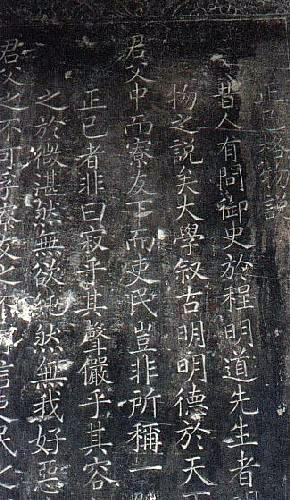 正己格物說
昔人有問御史於程明道先生者
物之說矣大學叙古明明德於天
君父中而寮友下而吏民豈非所稱一
正己者非曰寂乎其聲嚴乎其容
之於微湛然無欲然無我好惡
君父之不可孚寮友之不信吏民之